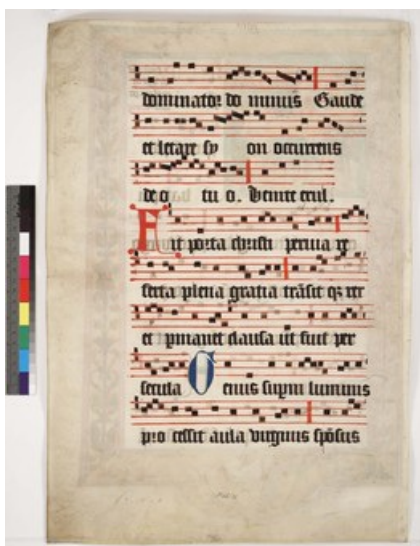 dominator do minus Gaude
et letare sy on occurrens
deo tu o. Venite exul.
Fit porta christi peruia re
ferta plena gratia trāsit qz rex
et pmanet clausa ut fuit per
secula Genus supni luminis
pro cessit aula virginis spōsus